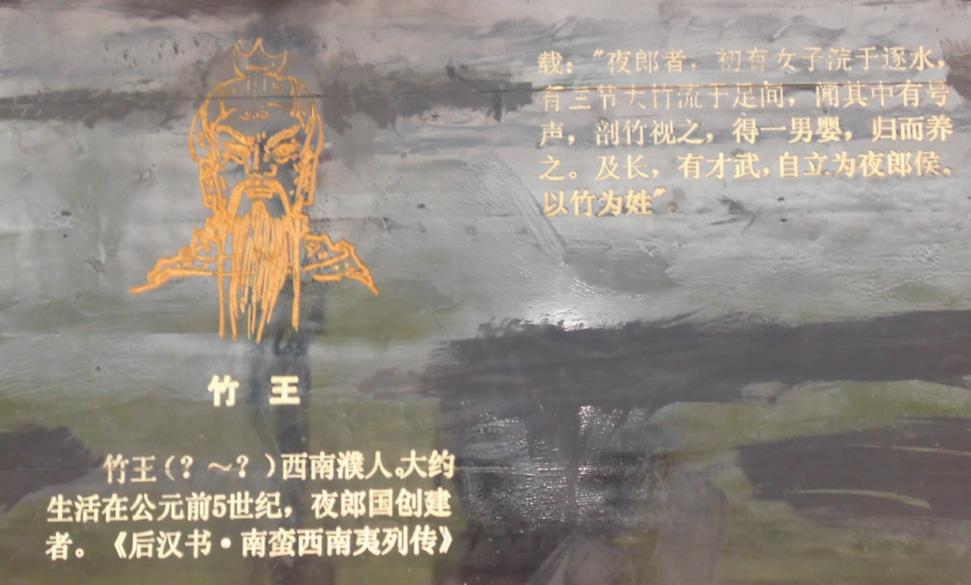 竹 王
竹王(？～？)西南濮人。大约
生活在公元前5世纪，夜郎国创建
者。《后汉书·南蛮西南夷列传》
载："夜郎者，初有女子浣于逐水，
有三节大竹流于足间，闻其中有号
声，剖竹视之，得一男婴，归而养
之。及长，有才武，自立为夜郎侯。
以竹为姓"。